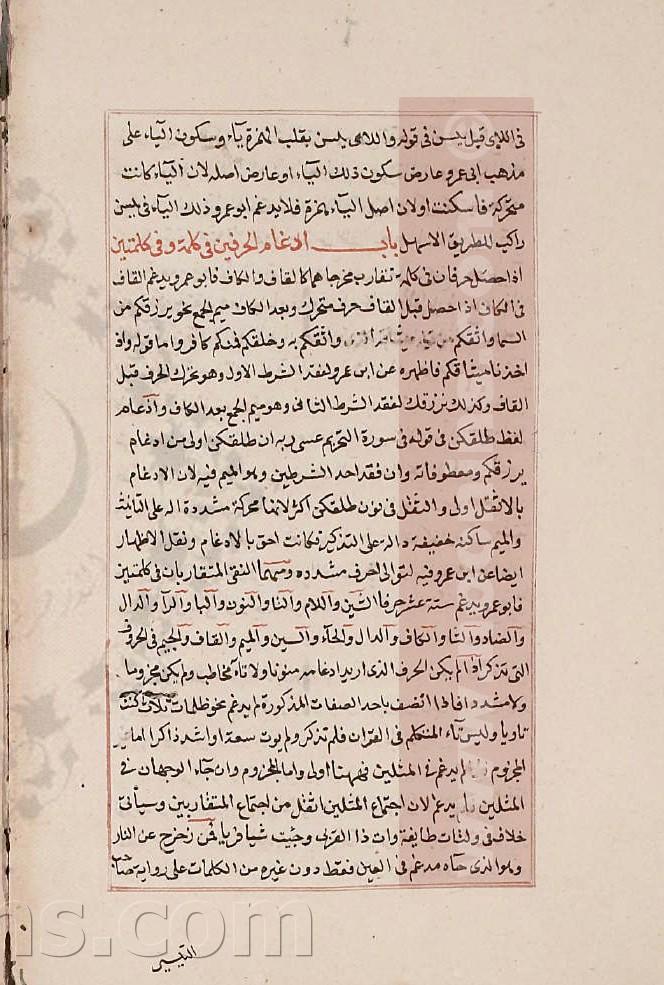 فى اللاى قبل يئسن فى قوله واللاى يئسن بقلب الهمزة ياء وسكون الياء على
مذهب ابى عمرو عارض سكون ذلك الياء او عارض اصله لان الياء كانت
متحركة فاسكنت او لان اصل الياء همزة فلا يدغم ابو عمرو ذلك الياء فى يئسن
راكب للطريق الاسهل باب ادغام الحرفين فى كلمة وفى كلمتين
اذا حصل حرفان فى كلمة تقارب مخرجاهما كالقاف والكاف فابو عمرو يدغم القاف
فى الكاف اذا حصل قبل القاف حرف متحرك وبعد الكاف ميم الجمع نحو يرزقكم من
السما واثقكم به وخلقكم فمنكم كافر واما قوله واذ
اخذنا ميثاقكم فاظهره عن ابن عمرو لفقد الشرط الاول وهو تحرك الحرف قبل
القاف وكذلك نرزقك لفقد الشرط الثانى وهو ميم الجمع بعد الكاف وادغام
لفظ طلقكن فى قوله فى سورة التحريم عسى ربه ان طلقكن اولى من ادغام
يرزقكم ومعطوفاته وان فقد احد الشرطين وهو الميم فيه لان الادغام
بالاثقل اولى والثقل فى نون طلقكن اكثر لانها محركة مشددة دالة على التانيث
والميم ساكنة خفيفة دالة على التذكير فكانت احق بالادغام ونقل الاظهار
ايضا عن ابن عمرو فيه لتوالى احرف مشدده ومهما التقى المتقاربان فى كلمتين
فابو عمرو يدغم ستة عشر حرفا الشين واللام والتا والنون والبا والرآ والدال
والضاد والثا والكاف والذال والحآء والسين والميم والقاف والجيم فى الحروف
التى تذكر اذا لم يكن الحرف الذى اريد ادغامه منونا ولا تآء مخاطب ولم يكن مجزوما
ولا مشددا فاذا اتصف باحد الصفات المذكورة لم يدغم نحو ظلمات ثلاث كنت
ثاويا وليس تآء المتكلم فى القران فلم تذكر ولم يوت سعة او اشد ذكرا اما غير
المجزوم لم يدغم فى المثلين فههنا اولى واما المجزوم وان جآء الوجهان فى
المثلين فلم يدغم لان اجتماع المثلين اثقل من اجتماع المتقاربين وسيأتى
خلاف فى ولتات طايفة وات ذا القربى وجئت شيا فريا فمن زحزح عن النار
وهو الذى حاه مدغم فى العين فقط دون غيره من الكلمات على رواية صاحب
التيسير